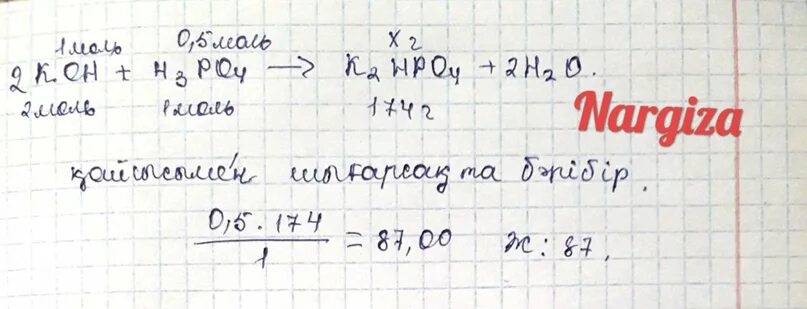 1моль 0,5моль х г
2KOH + H3PO4 → K2HPO4 + 2H2O.
2моль 1моль 174г
Nargiza
қайсысымен шығарсақ та бәрібір.
0,5 · 174
1
= 87,00 Ж: 87.